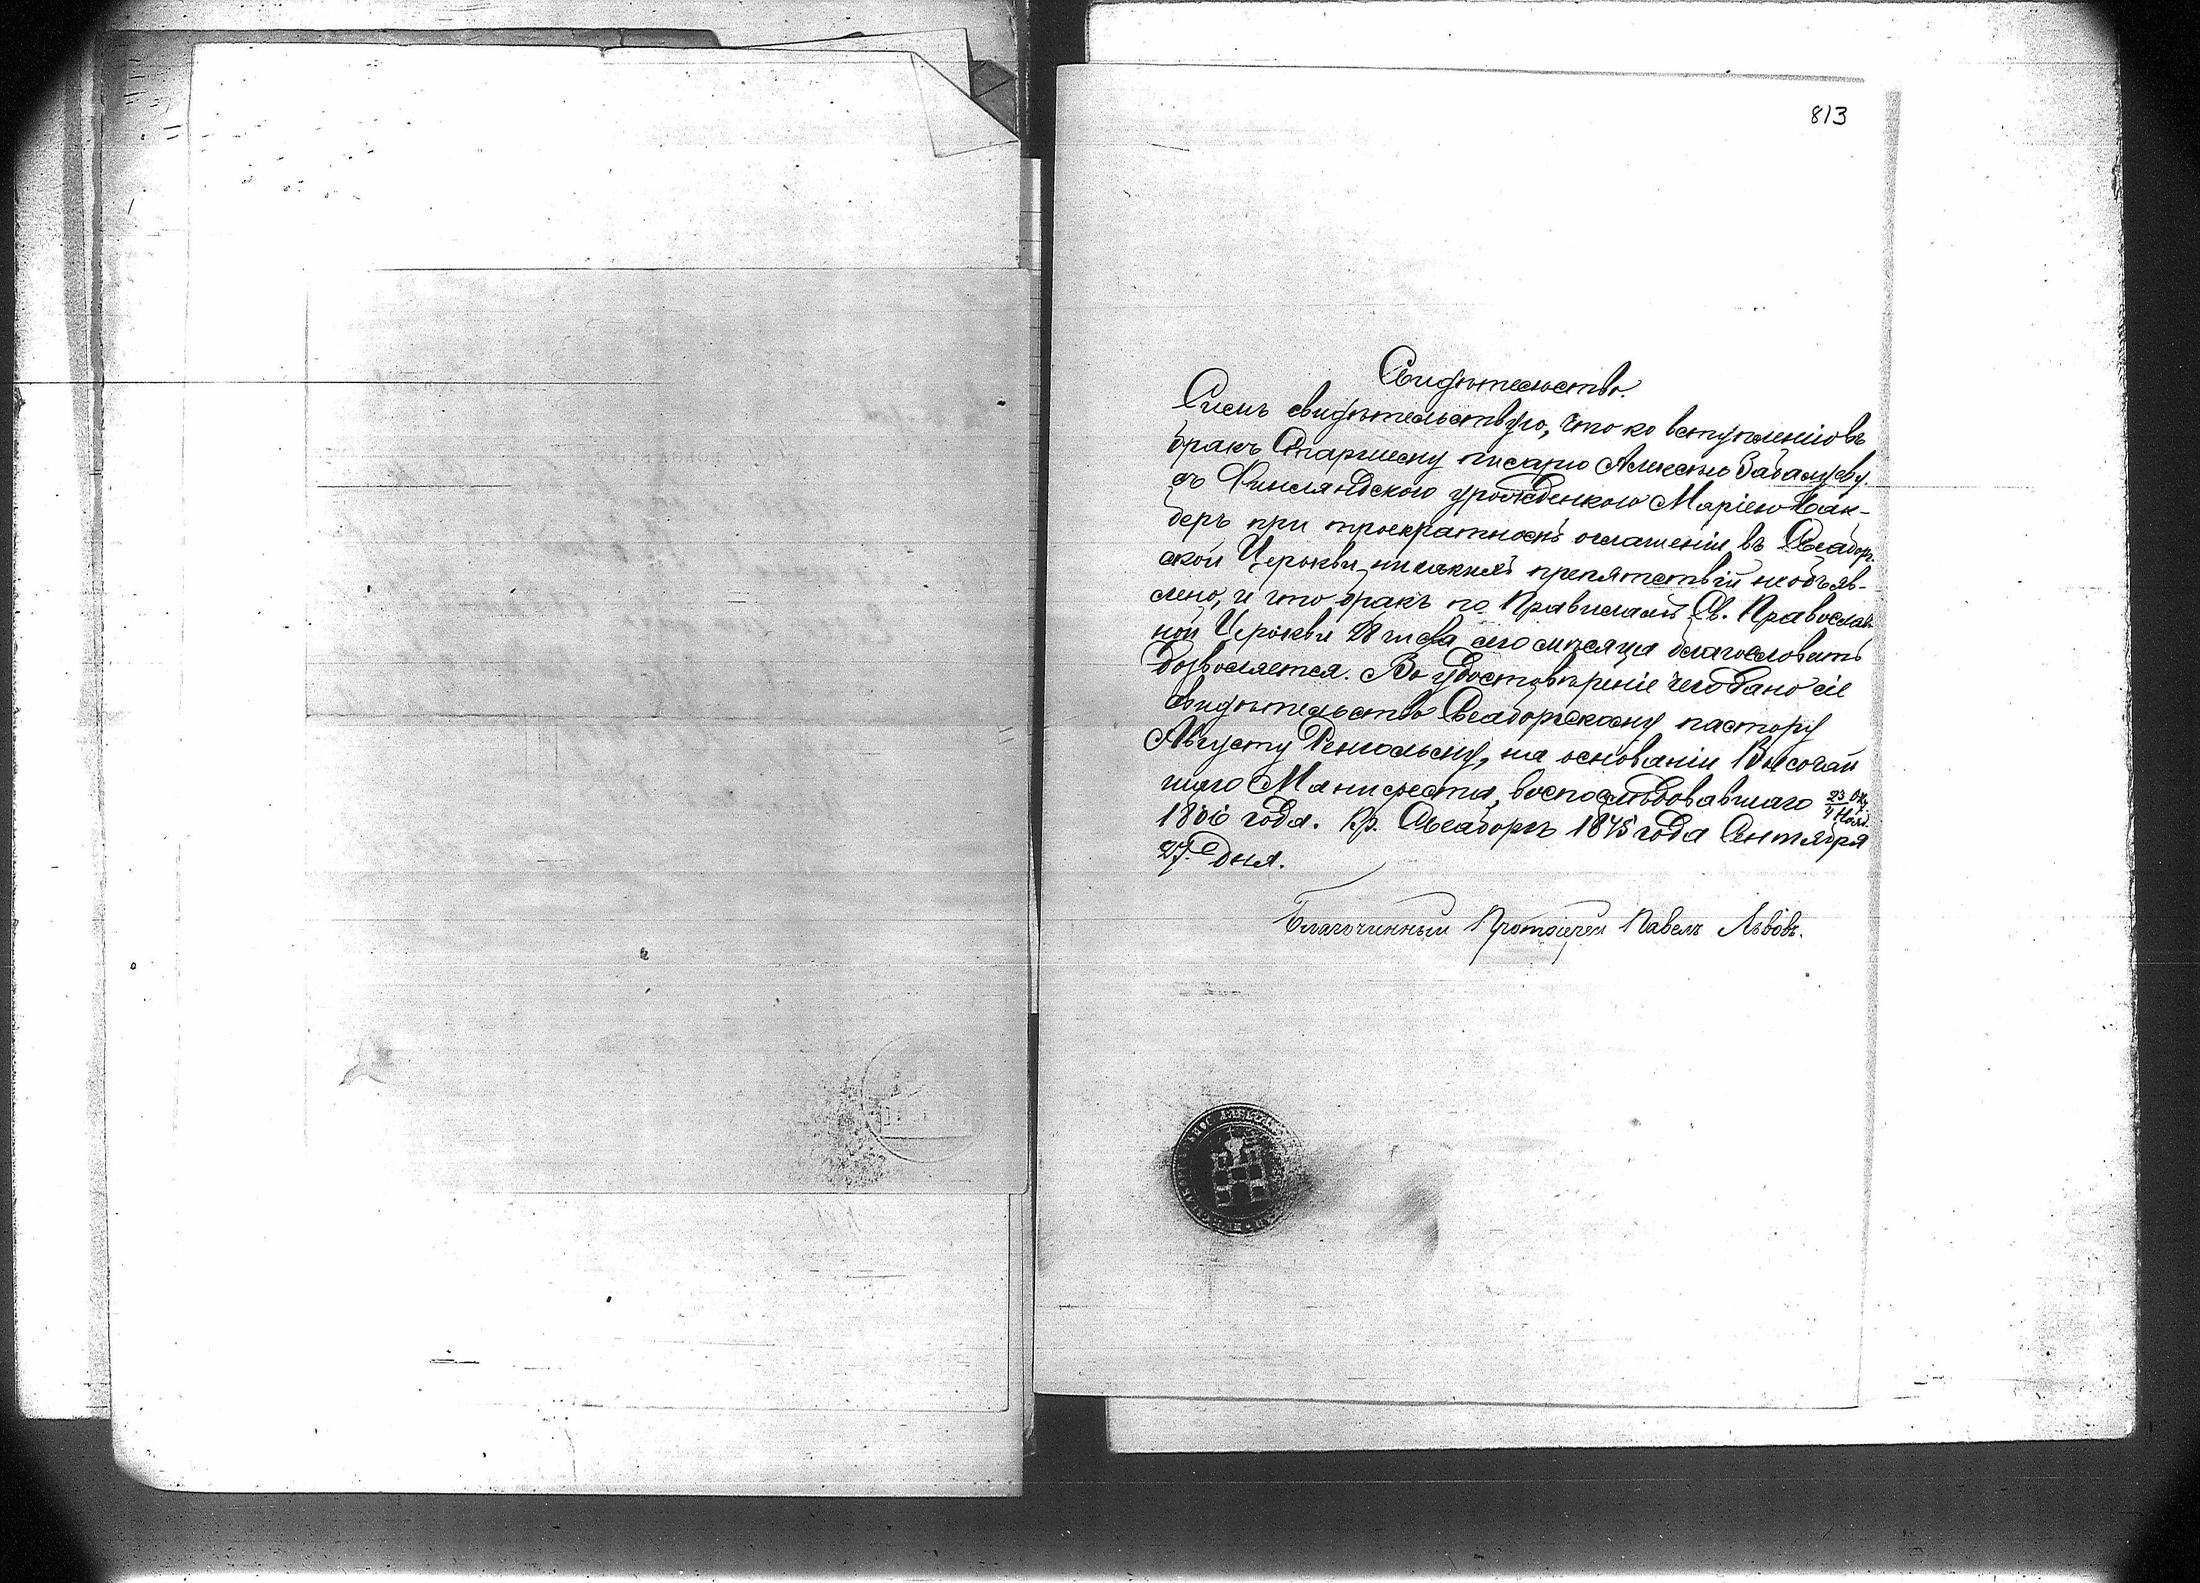 813
Свидѣтельство.
Симъ свидѣтельствую, что ко вступленію въ
бракъ Старшему писарю Алексѣю Забалуеву
съ Финляндскою урожденкою Маріею Бак-
беръ при троекратномъ оглашеніи въ Свеаборг-
ской Церкви никакихъ препятствій необъяв-
лено, и что бракъ по Правиламъ Св. Православ-
ной Церкви 28 числа сего мѣсяца благословить
дозволяется. Во удостовѣреніе чего дано сіе
свидѣтельство Свеаборгскому пастору
Августу, на основаніи Высочай
шаго Манифеста, воспослѣдовавшаго 23 Окт. / 4 Нояб.
1806 года. Кр. Свеаборгъ 1845 года Сентября
27. дня.
Благочинный Протоіерей Павелъ Львовъ.